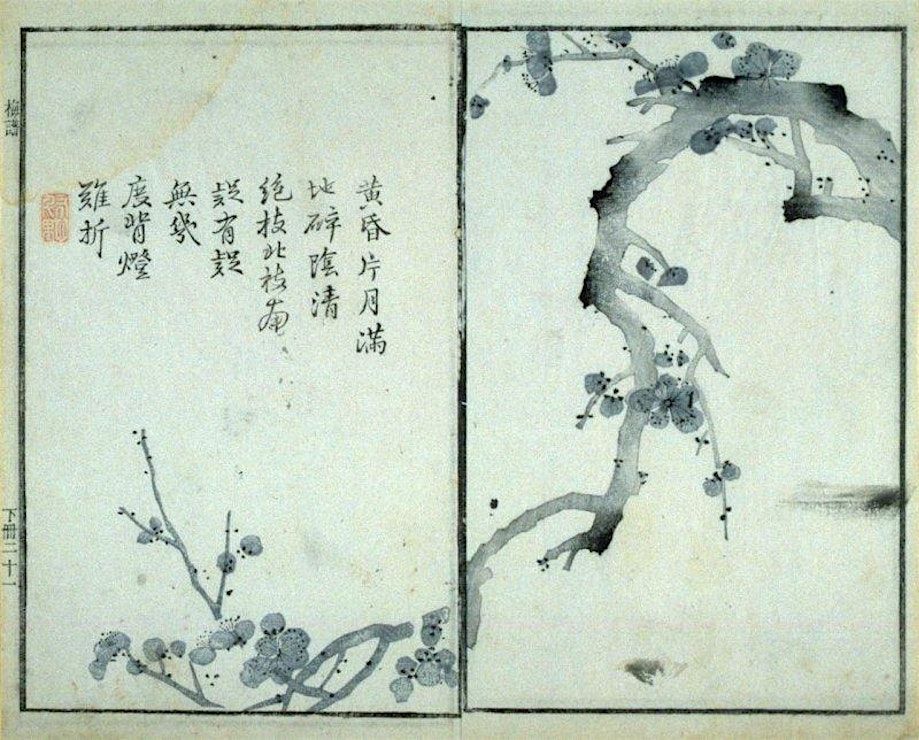 黄昏片月滿
地碎陰清
絕枝北枝南
疑有疑
無幾
度背燈
難折
梅譜
下冊二十一